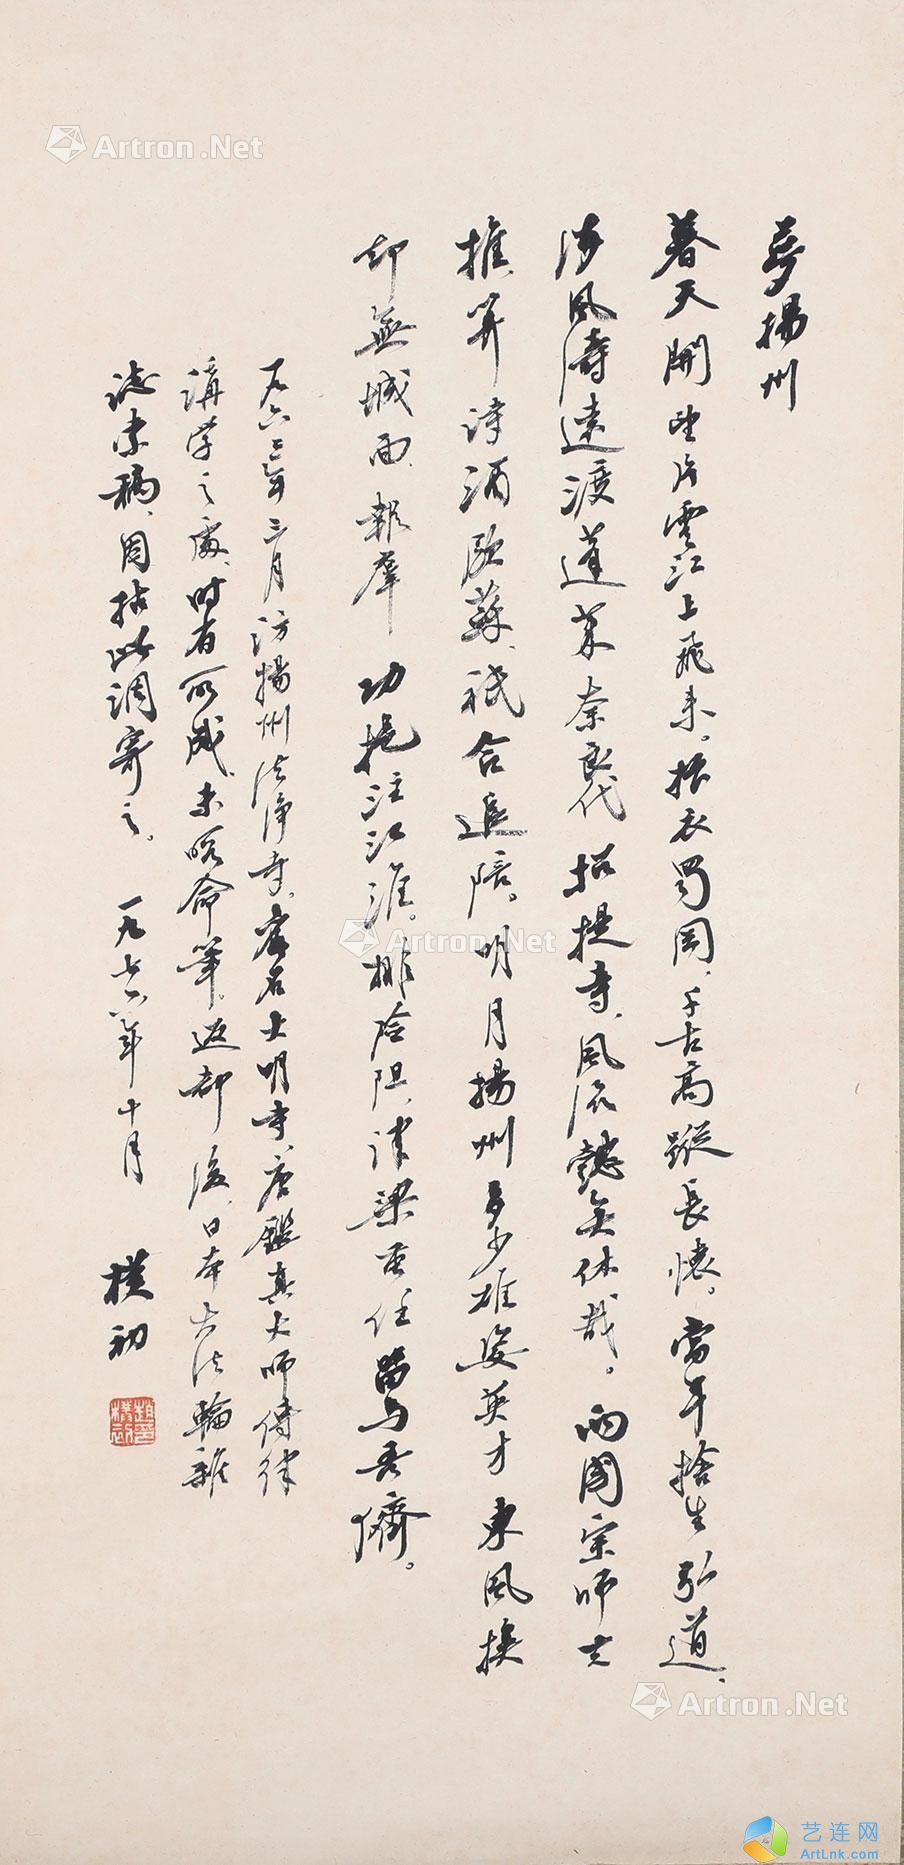 夢揚州
暮天開望片雲江上飛来。振衣蜀岡、千古高蹤長懷。當年捨生弘道、
涉風濤遠渡蓬萊奈良代招提寺、風流懿矣休哉。兩國宗師共
推算詩酒歐蘇、祇合追陪。明月揚州多少雄姿英才東風換
却蕪城面、報羣功挹注江淮。排险阻、津梁重任留与吾儕。
一九六三年三月访揚州法淨寺。寺名大明寺、唐鑑真大師傳律
講学之處、时有所感、未暇命筆。返都後、日本大法輪雜
誌索稿、因拈此調寄之。一九七六年十月
樸初
趙樸初印
Artron.Net
Artron.Net
Artron.Net
艺连网
ArtLnk.com